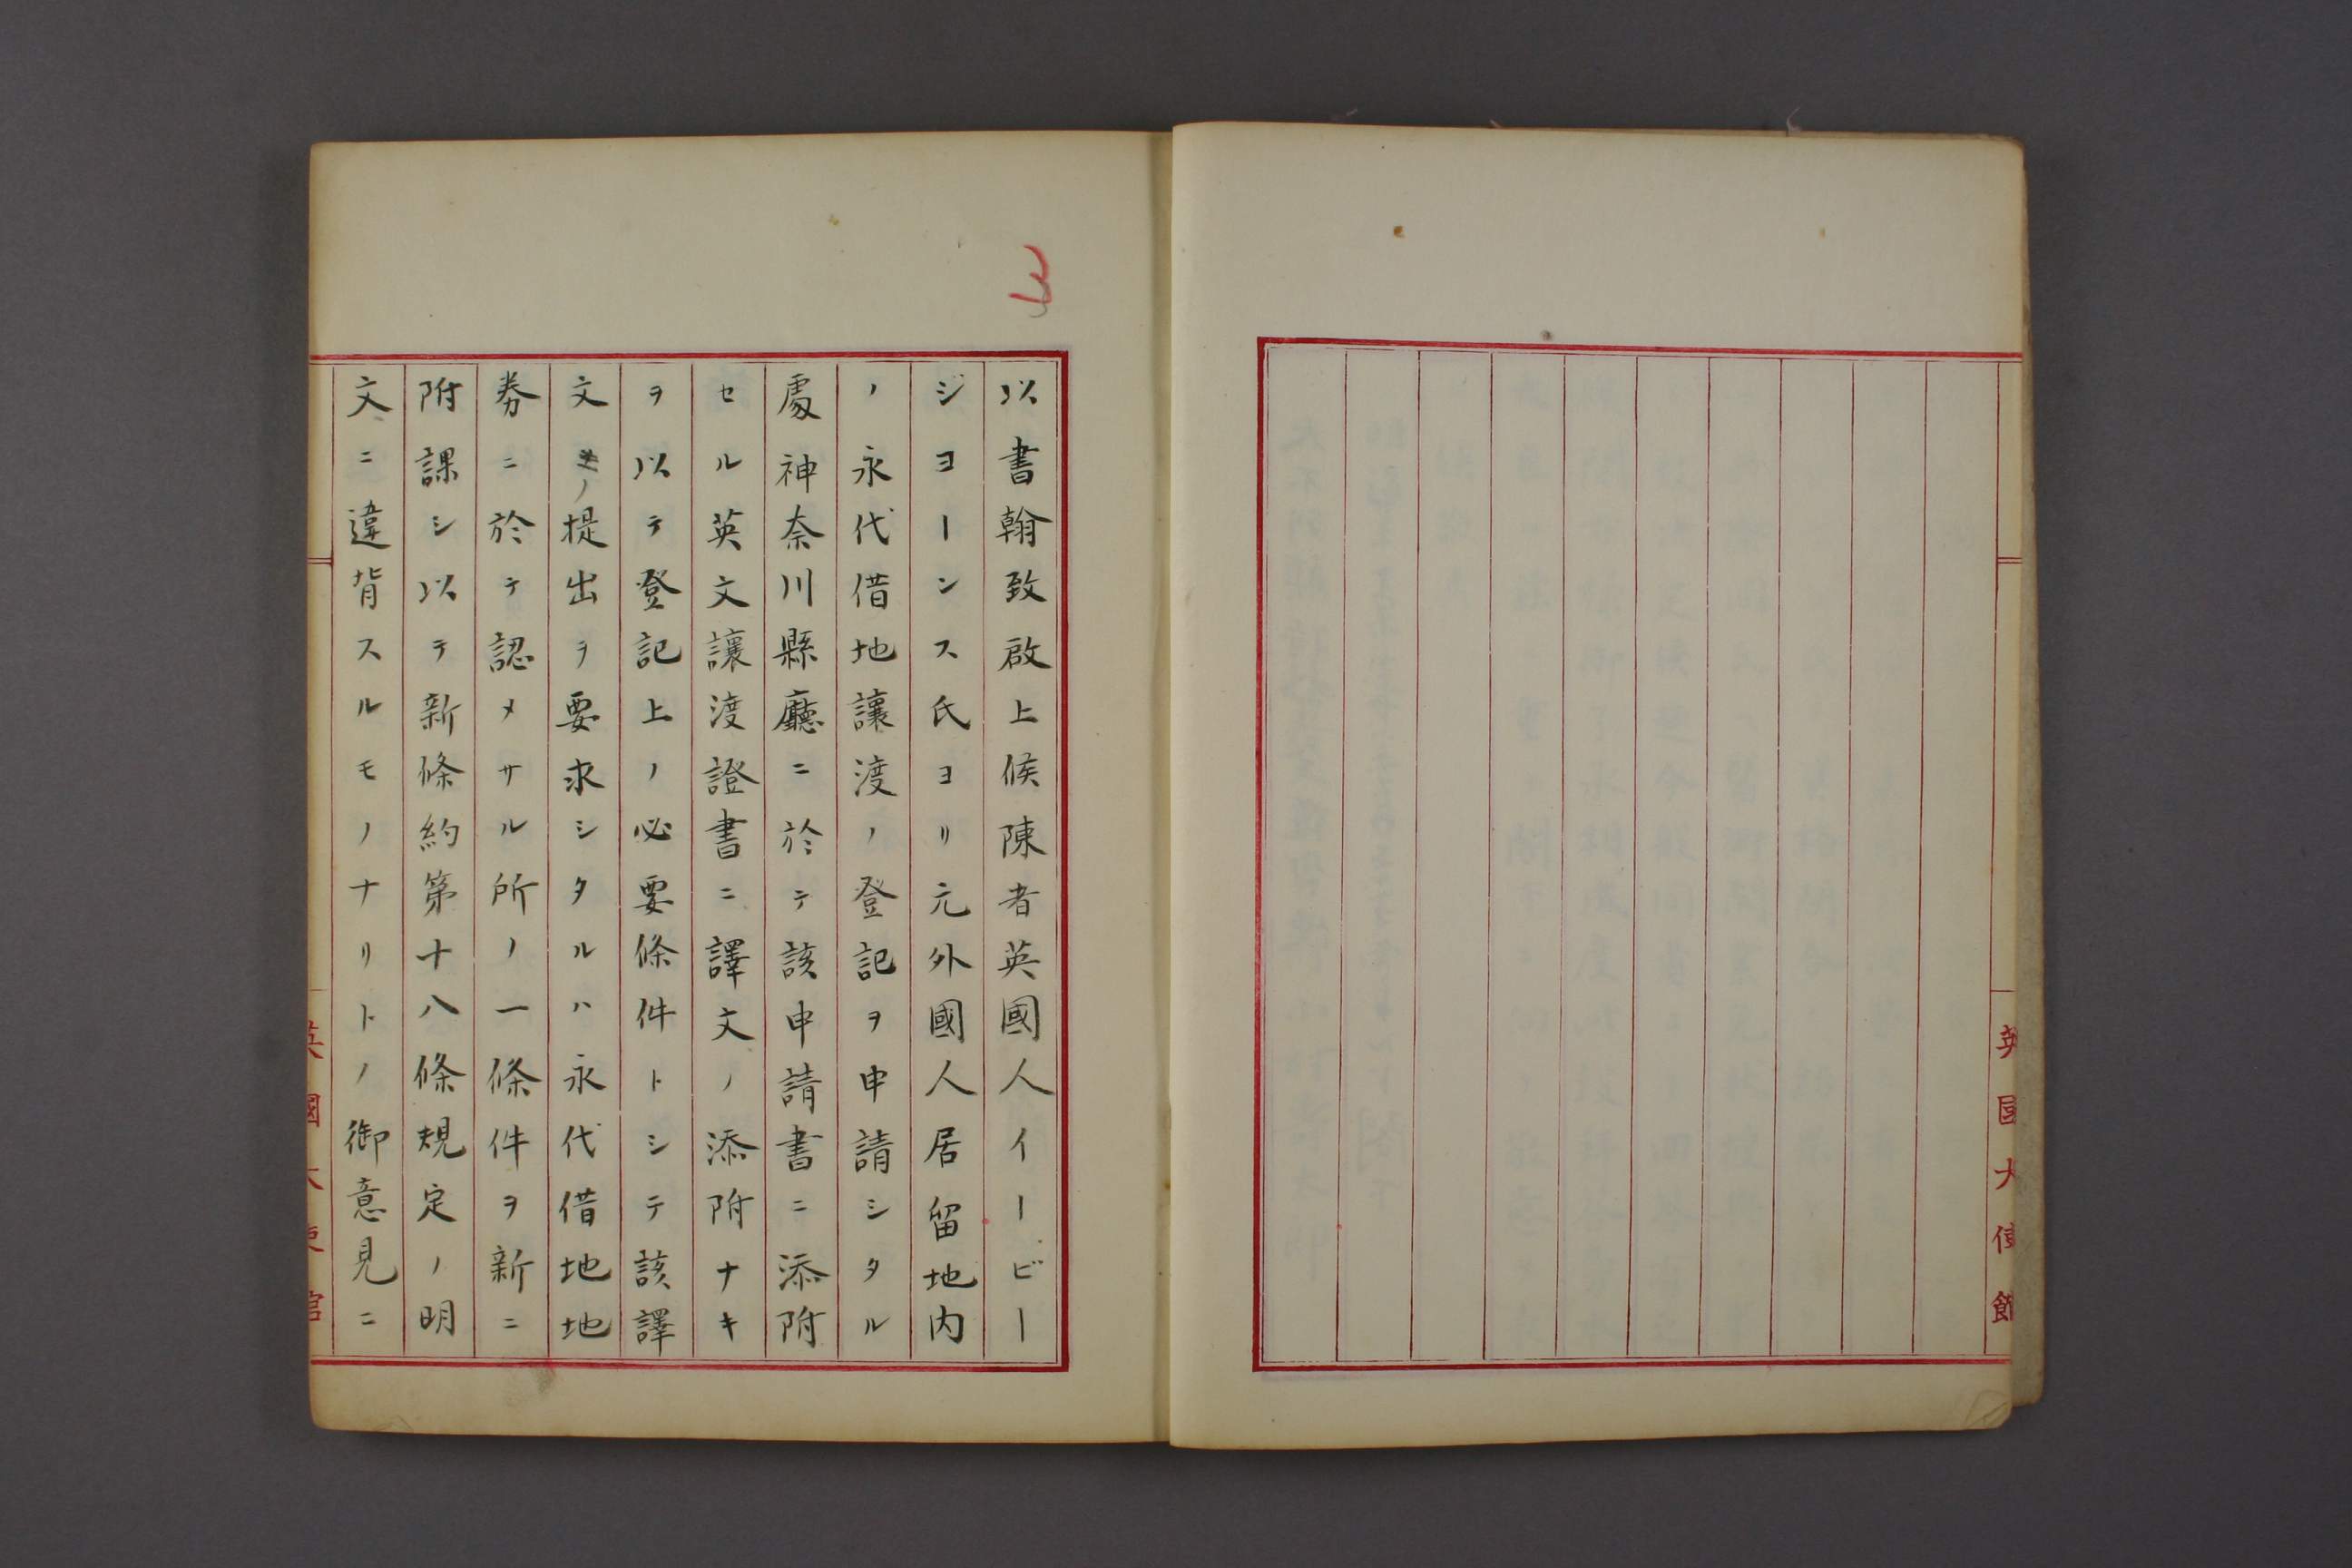 英國大使館
3
以書翰致啟上候陳者英國人イービー
ジヨーンス氏ヨリ元外國人居留地内
ノ永代借地讓渡ノ登記ヲ申請シタル
處神奈川縣廳ニ於テ該申請書ニ添附
セル英文讓渡證書ニ譯文ノ添附ナキ
ヲ以テ登記上ノ必要條件トシテ該譯
文ノ提出ヲ要求シタルハ永代借地地
券ニ於テ認メサル所ノ一條件ヲ新ニ
附課シ以テ新條約第十八條規定ノ明
文ニ違背スルモノナリトノ御意見ニ
英國大使館